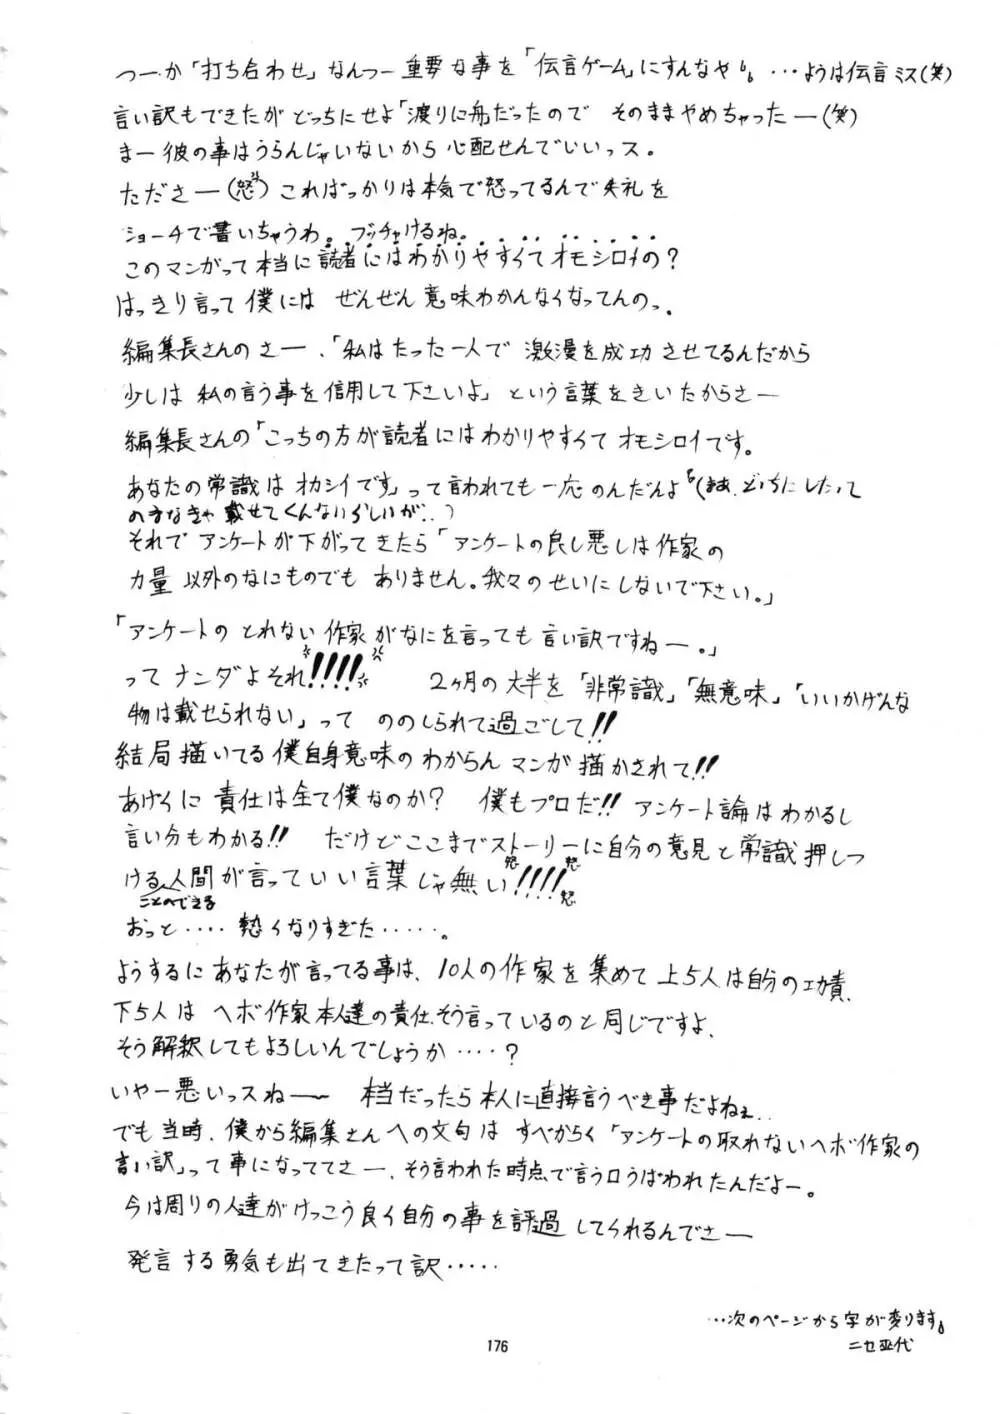 つーか「打ち合わせ」なんつー重要な事を「伝言ゲーム」にすんなや。…ようは伝言ミス(笑)
言い訳もできたがどっちにせよ「渡りに舟」だったので そのままやめちゃったー(笑)
まー彼の事はうらんじゃいないから心配せんでいいっス。
たださー(怒)こればっかりは本気で怒ってるんで失礼を
ショーチで書いちゃうわ。ブッチャけるね。
このマンガって本当に読者にはわかりやすくてオモシロイの?
はっきり言って僕には ぜんぜん意味わかんなくなってんのっ.
編集長さんのさー.「私はたった一人で 激漫を成功させてるんだから
少しは 私の言う事を信用して下さいよ」という言葉をきいたからさー
編集長さんの「こっちの方が読者にはわかりやすくてオモシロイです。
あなたの常識はオカシイです」って言われても一応のんだんよ(まあ.どっちにしたって
のまなきゃ載せてくんないらしいが..)
それでアンケートが下がってきたら「アンケートの良し悪しは作家の
力量以外のなにものでもありません。我々のせいにしないで下さい。」
「アンケートのとれない作家がなにを言っても言い訳ですねー。」
ってナンダよそれ!!!! 2ヶ月の大半を「非常識」「無意味」「いいかげんな
物は載せられない」って ののしられて過ごして!!
結局描いてる僕自身意味のわからんマンガ描かされて!!
あげくに責任は全て僕なのか? 僕もプロだ!! アンケート論はわかるし
言い分もわかる!! だけどここまでストーリーに自分の意見と常識押しつ
ける人間が言っていい言葉じゃ無い!!!! 怒 怒 怒
ことのできる
おっと‥‥熱くなりすぎた‥‥‥。
ようするにあなたが言ってる事は、10人の作家を集めて上5人は自分の功責.
下5人はヘボ作家本人達の責任.そう言っているのと同じですよ.
そう解釈してもよろしいんでしょうか‥‥?
いやー悪いっスねー〜 本当だったら本人に直接言うべき事だよねぇ..
でも当時.僕から編集さんへの文句は すべからく「アンケートの取れないヘボ作家の
言い訳」って事になっててさー.そう言われた時点で言う口うばわれたんだよー。
今は周りの人達がけっこう良く自分の事を評過してくれるんでさー
発言する勇気も出てきたって訳‥‥‥
…次のページから字が変ります。
ニセ亜代
176